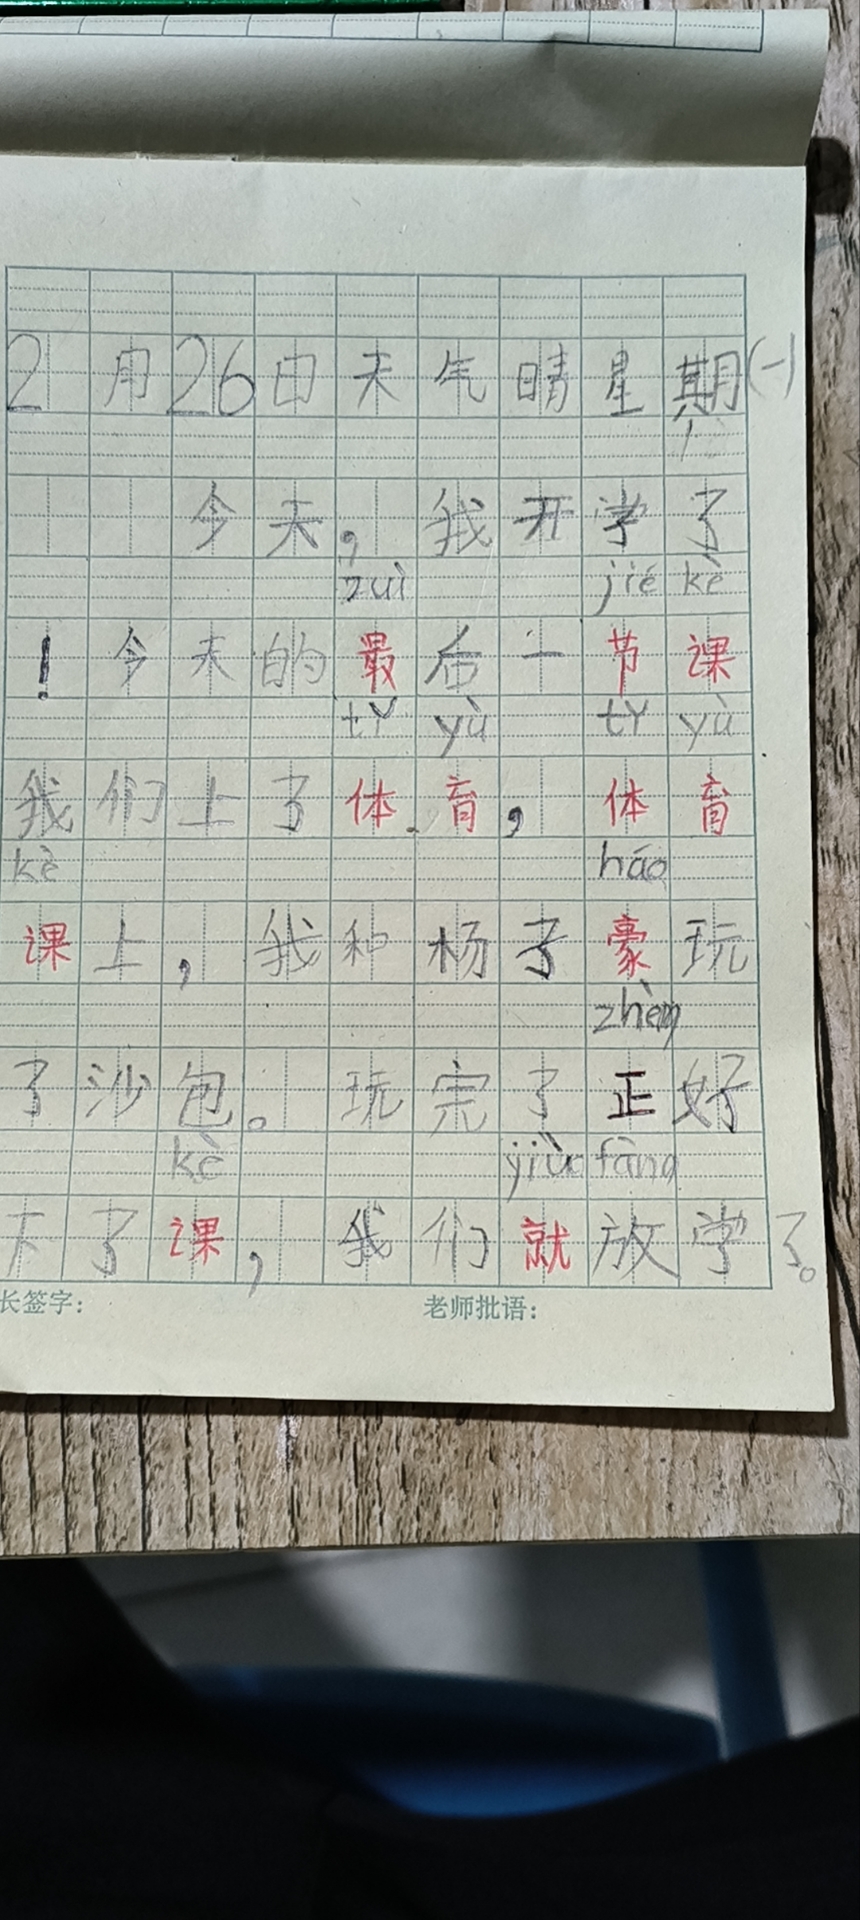 2月26日天气晴星期(一)
今天，我开学了
zuì jié kè
！今天的最后一节课
tǐ yù tǐ yù
我们上了体育，体育
kè háo
课上，我和杨子豪玩
zhèng
了沙包。玩完了正好
kè jiùo fàng
下了课，我们就放学了。
长签字： 老师批语：